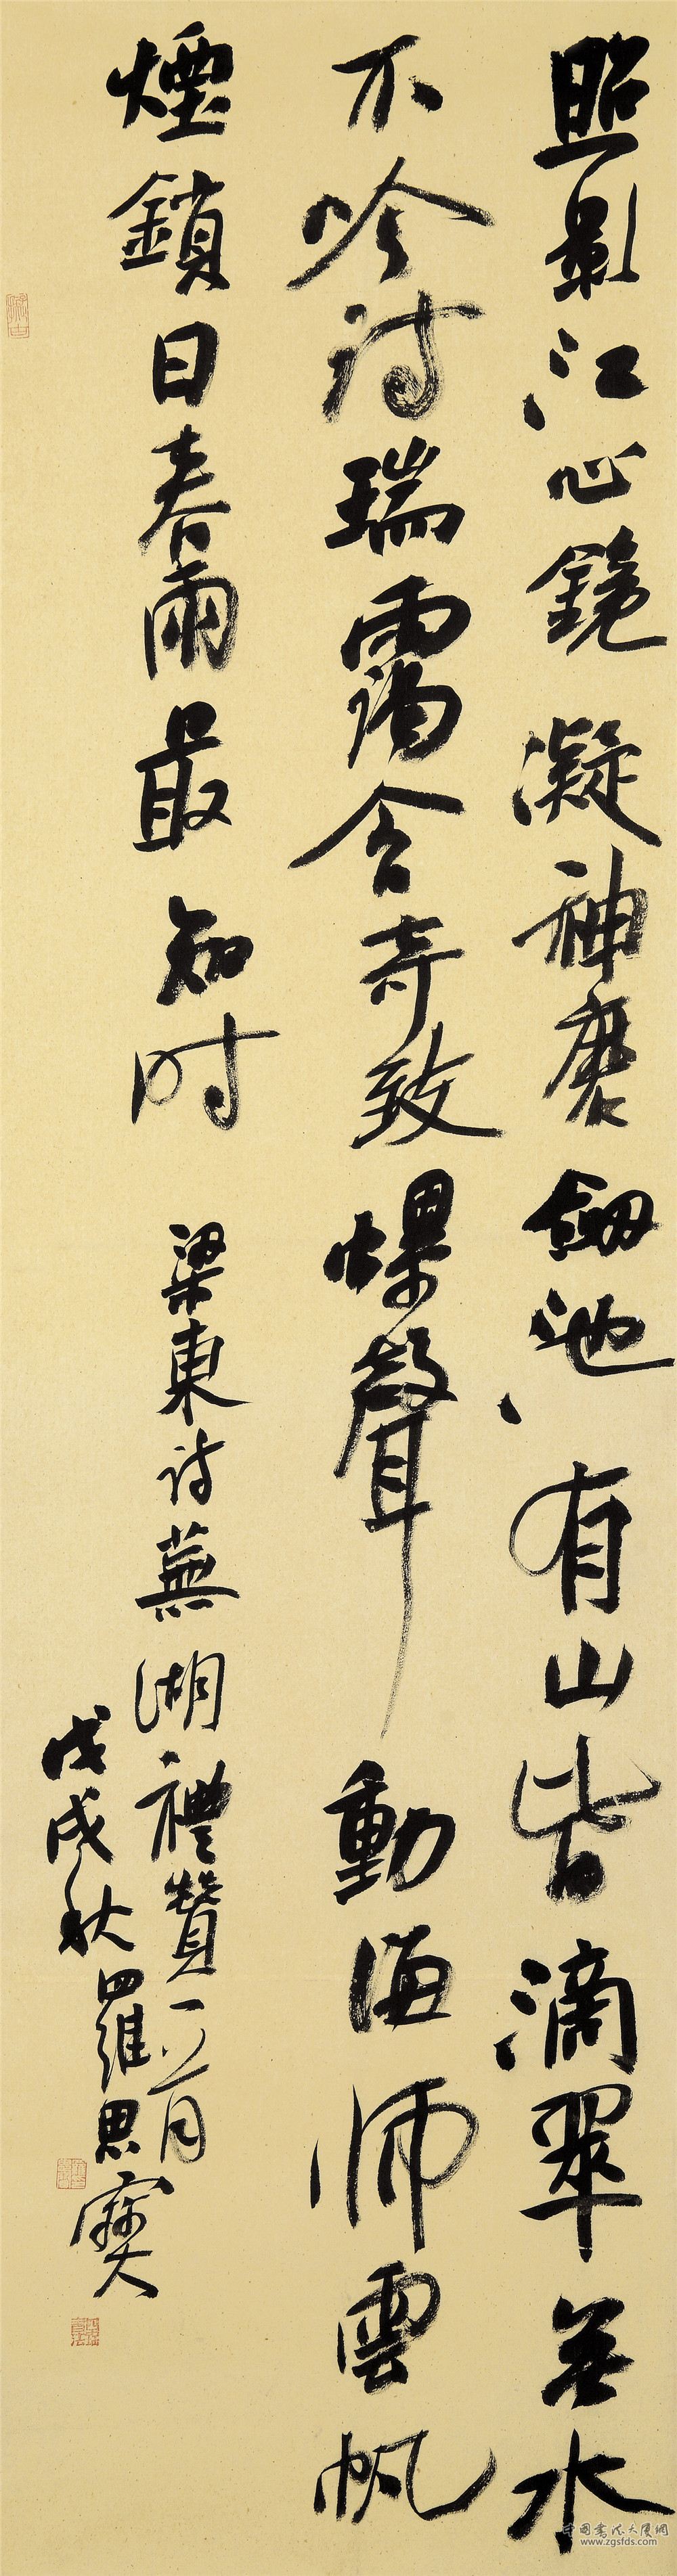 照影江心鏡凝神磨劍池有山皆滴翠無水
不吟詩瑞靄含奇致螺聲動海師雲帆
煙鎖日春雨最知時
梁東詩蕪湖禮贊一首
戊戌秋羅思寶
中国书法大厦网
www.zgsfds.com